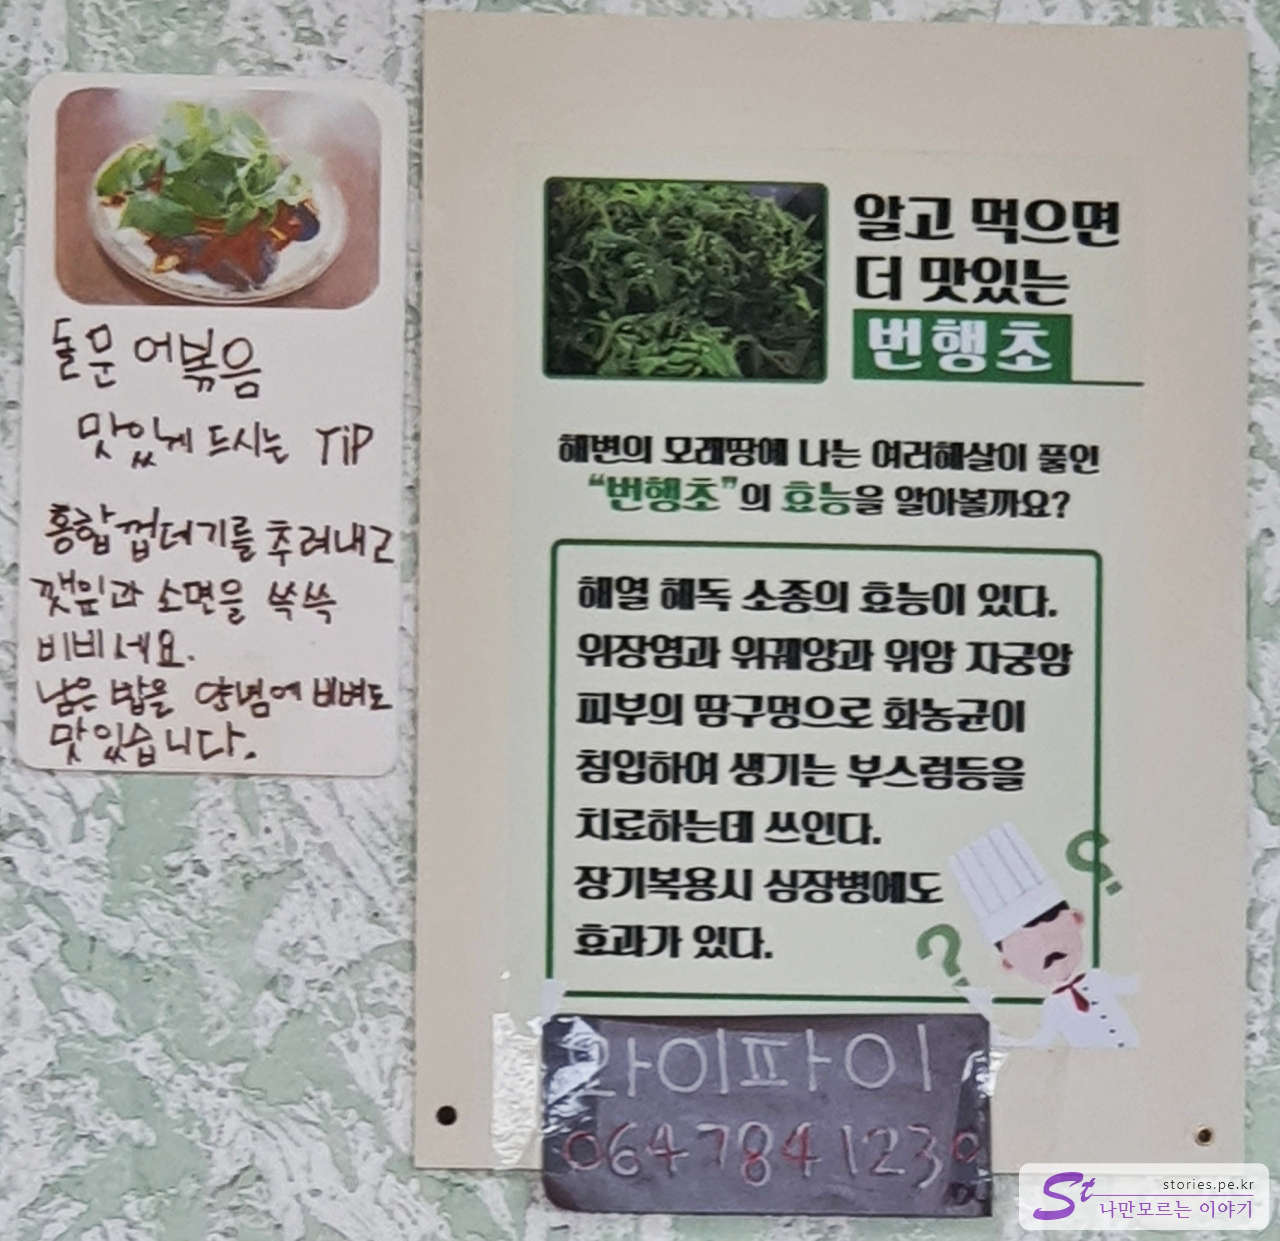 돌문어볶음
맛있게 드시는 TIP
홍합껍더기를 추려내고
깻잎과 소면을 쓱쓱
비비세요.
남은 밥을 양념에 비벼도
맛있습니다.
알고 먹으면
더 맛있는
번행초
해변의 모래땅에 나는 여러해살이 풀인
“번행초”의 효능을 알아볼까요?
해열 해독 소종의 효능이 있다.
위장염과 위궤양과 위암 자궁암
피부의 땀구멍으로 화농균이
침입하여 생기는 부스럼등을
치료하는데 쓰인다.
장기복용시 심장병에도
효과가 있다.
?
?
와이파이
0647841230
St
stories.pe.kr
나만모르는 이야기